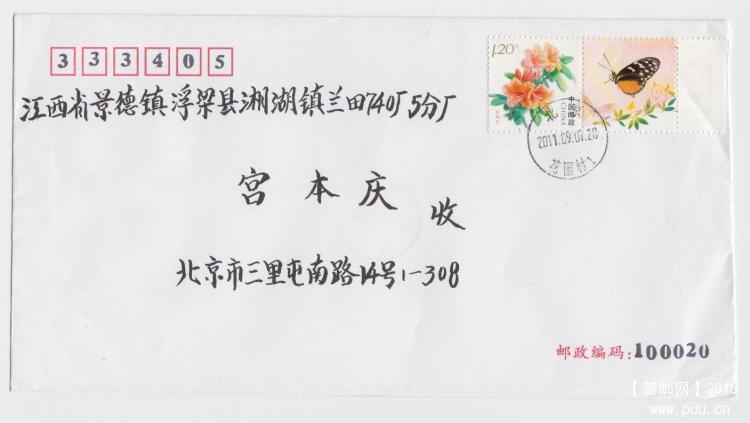 333405
1.20元
中国邮政
CHINA
江西省景德镇浮梁县湘湖镇兰田740厂5分厂
北京
2011.09.01.20
花园村
宫本庆 收
北京市三里屯南路14号1-308
邮政编码:100020
【普邮网】2013
www.puu.cn